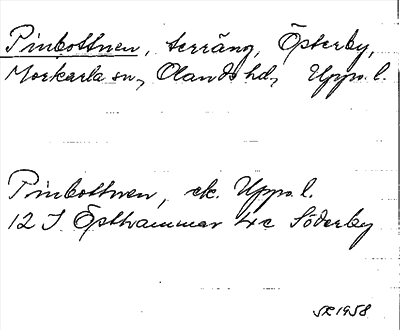 Pinbottnen, terräng, Österby,
Morkarla sn, Olands hd, Upps. l.
Pinbottnen, ek. Upps. l.
12 I Östhammar 4c Söderby
SR 1958